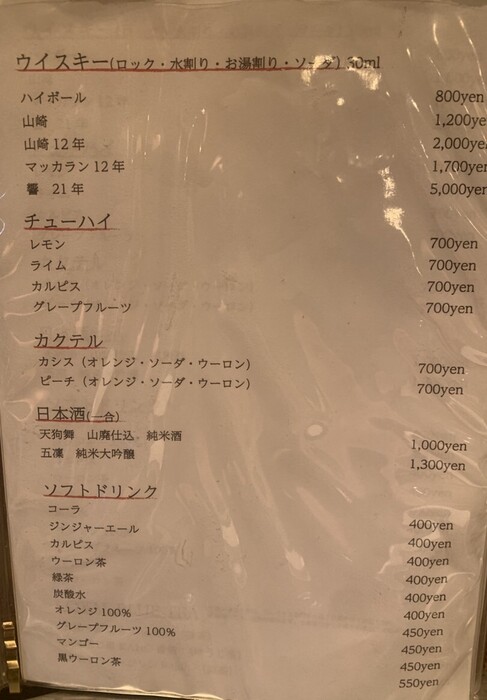 ウイスキー(ロック・水割り・お湯割り・ソーダ) 30ml
ハイボール 800yen
山崎 1,200ye
山崎 12 年 2,000ye
マッカラン 12 年 1,700yen
響 21 年 5,000yen
チューハイ
レモン 700yen
ライム 700yen
カルピス 700yen
グレープフルーツ 700yen
カクテル
カシス（オレンジ・ソーダ・ウーロン） 700yen
ピーチ（オレンジ・ソーダ・ウーロン） 700yen
日本酒(一合)
天狗舞 山廃仕込 純米酒 1,000yen
五凜 純米大吟醸 1,300yen
ソフトドリンク
コーラ 400yen
ジンジャーエール 400yen
カルピス 400yen
ウーロン茶 400yen
緑茶 400yen
炭酸水 400yen
オレンジ 100% 450yen
グレープフルーツ 100% 450yen
マンゴー 450yen
黒ウーロン茶 550yen